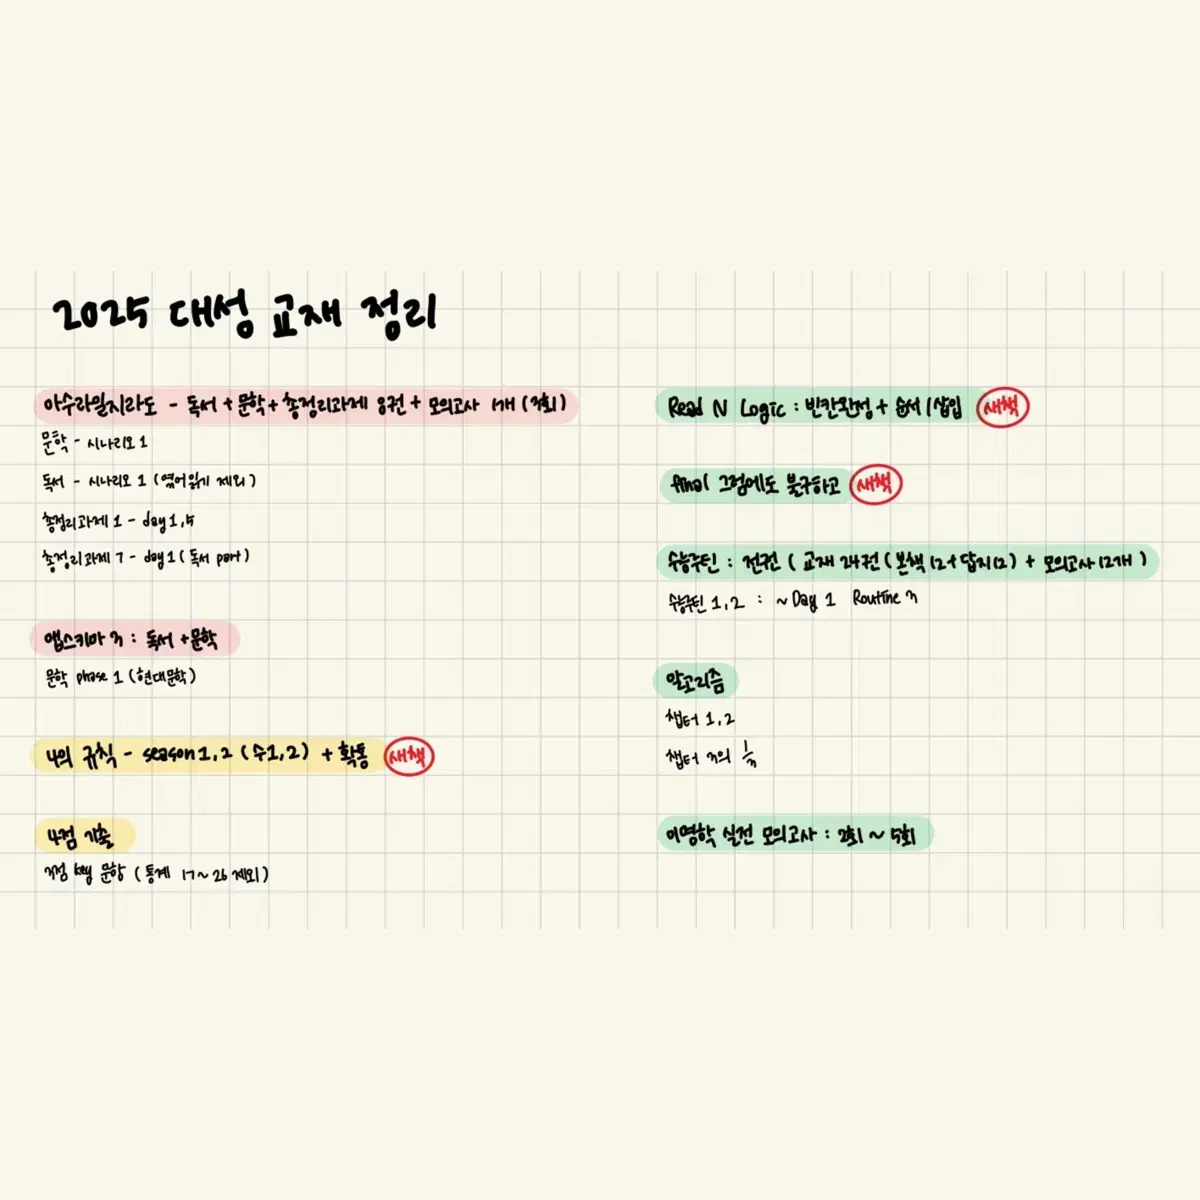 2025 대성 교재 정리
아수라일지라도 - 독서 + 문학 + 총정리과제 8권 + 모의고사 1개 (3회)
문학 - 시나리오 1
독서 - 시나리오 1 (엮어읽기 제외)
총정리과제 1 - day 1, 5
총정리과제 7 - day 1 (독서 part)
앱스키마 3 : 독서 + 문학
문학 phase 1 (현대문학)
4의 규칙 - season 1, 2 (수1, 2) + 확통 새책
4점 기출
3점 key 문항 (통계 17~26 제외)
Read N Logic : 빈칸완성 + 순서/삽입 새책
final 그럼에도 불구하고 새책
수능루틴 : 전권 ( 교재 24권 ( 본책 12 + 답지12) + 모의고사 12개 )
수능루틴 1, 2 : ~ Day 1 Routine 3
알고리즘
챕터 1, 2
챕터 3의 1/3
이명학 실전 모의고사 : 2회 ~ 5회